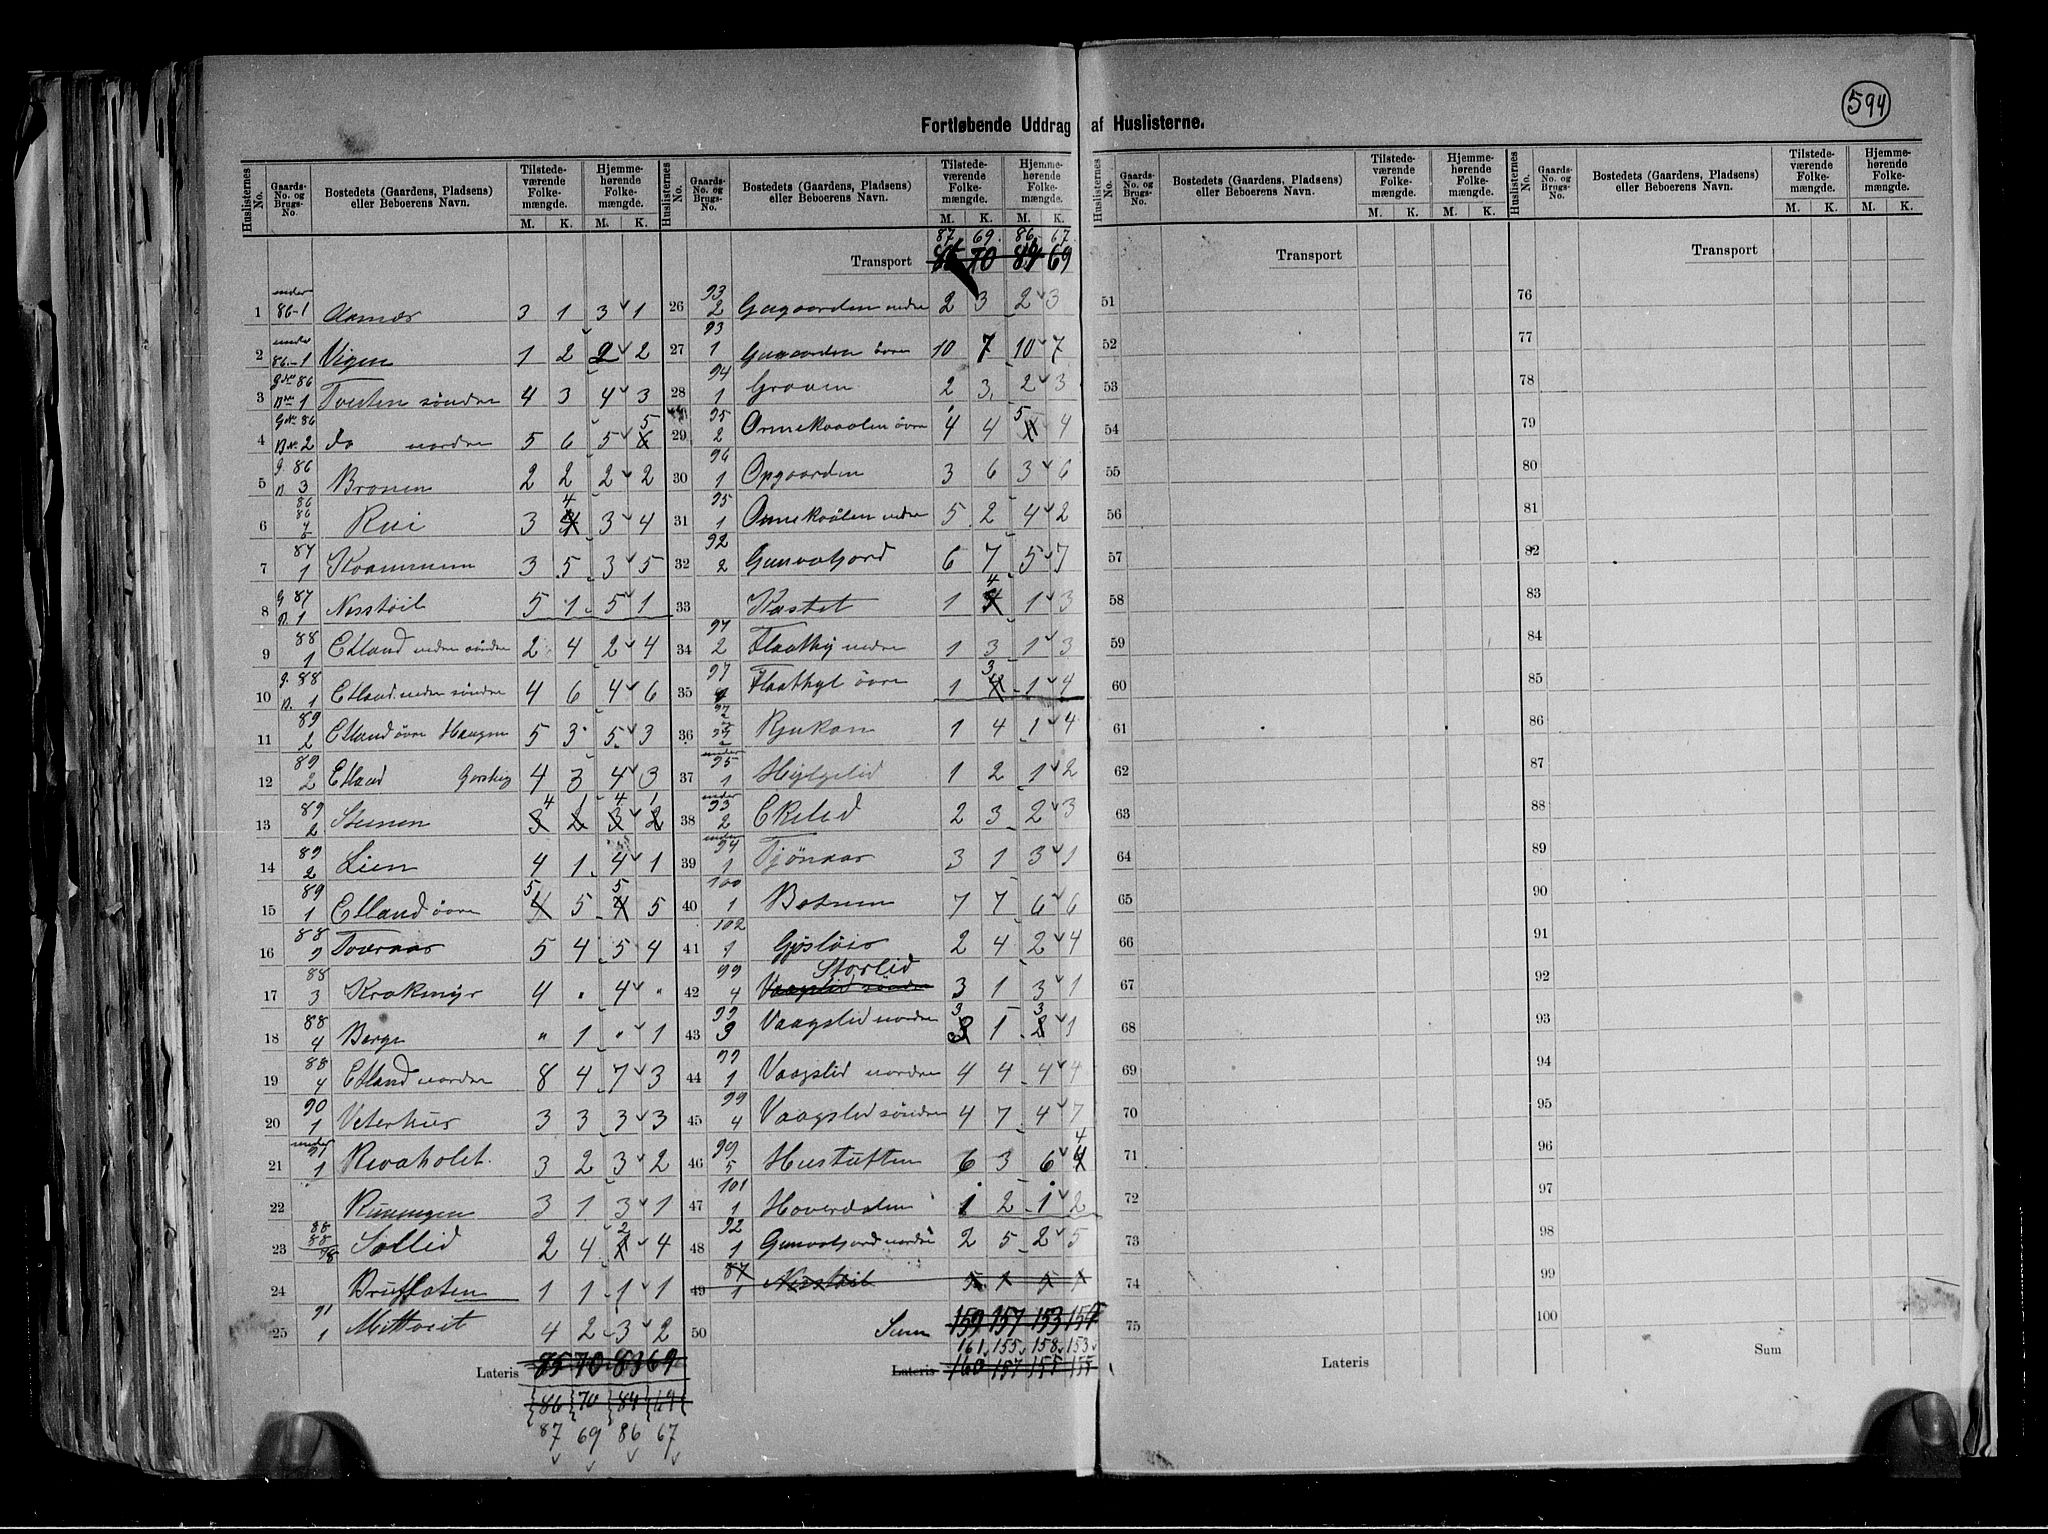 594
Fortløbende Uddrag af Huslisterne.
Huslisternes No. Gaards-No. og Brugs-No. Bostedets (Gaardens, Pladsens) eller Beboerens Navn. Tilstedeværende Folkemængde. M. K. Hjemmehørende Folkemængde. M. K.
1 under 86-1 Aamnes 3 1 3 1
2 under 86-1 Vigen 1 2 2 2
3 Gno 86 Bno 1 Tveiten søndre 4 3 4 3
4 Gn. 86 Bn. 2 do nordre 5 6 5 5
5 g. 86 B 3 Bronen 2 2 2 2
6 86 Rui 3 4 3 4
7 87 1 Kaammen 3 5 3 5
8 g 87 B. 1 Nesstøil 5 1 5 1
9 88 1 Etland nedre søndre 2 4 2 4
10 g. 88 B. 1 Etland nedre søndre 4 6 4 6
11 89 2 Etland øvre Haugen 5 3 5 3
12 89 2 Etland 4 3 4 3
13 89 2 Steinen 4 1 4 1
14 89 2 Lien 4 1 4 1
15 89 1 Etland øvre 5 5 5 5
16 88 2 Tveraas 5 4 5 4
17 88 3 Krokmyr 4 " 4 "
18 88 4 Berge " 1 " 1
19 88 4 Etland nordre 8 4 7 3
20 90 1 Veterhus 3 3 3 3
21 under 91 1 Revaholet. 3 2 3 2
22 Runingen 3 1 3 1
23 88 Sollid 2 4 2 4
24 Bruflaten 1 1 1 1
25 91 1 Mittveit 4 2 3 2
Lateris 75 70 83 69
86 70 84 69
87 69 86 67
Huslisternes No. Gaards-No. og Brugs-No. Bostedets (Gaardens, Pladsens) eller Beboerens Navn. Tilstedeværende Folkemængde. M. K. Hjemmehørende Folkemængde. M. K.
87 69 86 67
Transport 86 70 84 69
26 93 2 Gugaarden nedre 2 3 2 3
27 93 1 Gugaarden øvre 10 7 10 7
28 94 1 Graven 2 3 2 3
29 95 2 Ormekaaalen øvre 4 4 5 4
30 96 1 Opgaarden 3 6 3 6
31 95 1 Ormekaalen nedre 5 2 4 2
32 92 2 Gunvatjord 6 7 5 7
33 Kastet 1 4 1 3
34 97 2 Flaathyl nedre 1 3 1 3
35 97 Flaathyl øvre 1 3 1 4
36 97 Rjukan 1 4 1 4
37 under 95 1 Hylgelid 1 2 1 2
38 under 93 2 Ekelid 2 3 2 3
39 under 94 1 Tjønaas 3 1 3 1
40 100 1 Botnen 7 7 6 6
41 102 1 Gjisløis 2 4 2 4
42 99 4 Vaagslid søndre Storlid 3 1 3 1
43 99 3 Vaagslid nordre 3 1 3 1
44 99 1 Vaagslid nordre 4 4 4 4
45 99 4 Vaagslid søndre 4 7 4 7
46 99 5 Hustuften 6 3 6 4
47 101 1 Hoverdalen 1 2 1 2
48 92 1 Gunvatjord nordre 2 5 2 5
49 87 1 Nesstøil 5 1 5 1
50 Sum 159 157 153 154
161 155 158 153
Lateris 160 157 155 155
Huslisternes No. Gaards-No. og Brugs-No. Bostedets (Gaardens, Pladsens) eller Beboerens Navn. Tilstedeværende Folkemængde. M. K. Hjemmehørende Folkemængde. M. K.
Transport
51
52
53
54
55
56
57
58
59
60
61
62
63
64
65
66
67
68
69
70
71
72
73
74
75
Lateris
Huslisternes No. Gaards-No. og Brugs-No. Bostedets (Gaardens, Pladsens) eller Beboerens Navn. Tilstedeværende Folkemængde. M. K. Hjemmehørende Folkemængde. M. K.
Transport
76
77
78
79
80
81
82
83
84
85
86
87
88
89
90
91
92
93
94
95
96
97
98
99
100
Sum